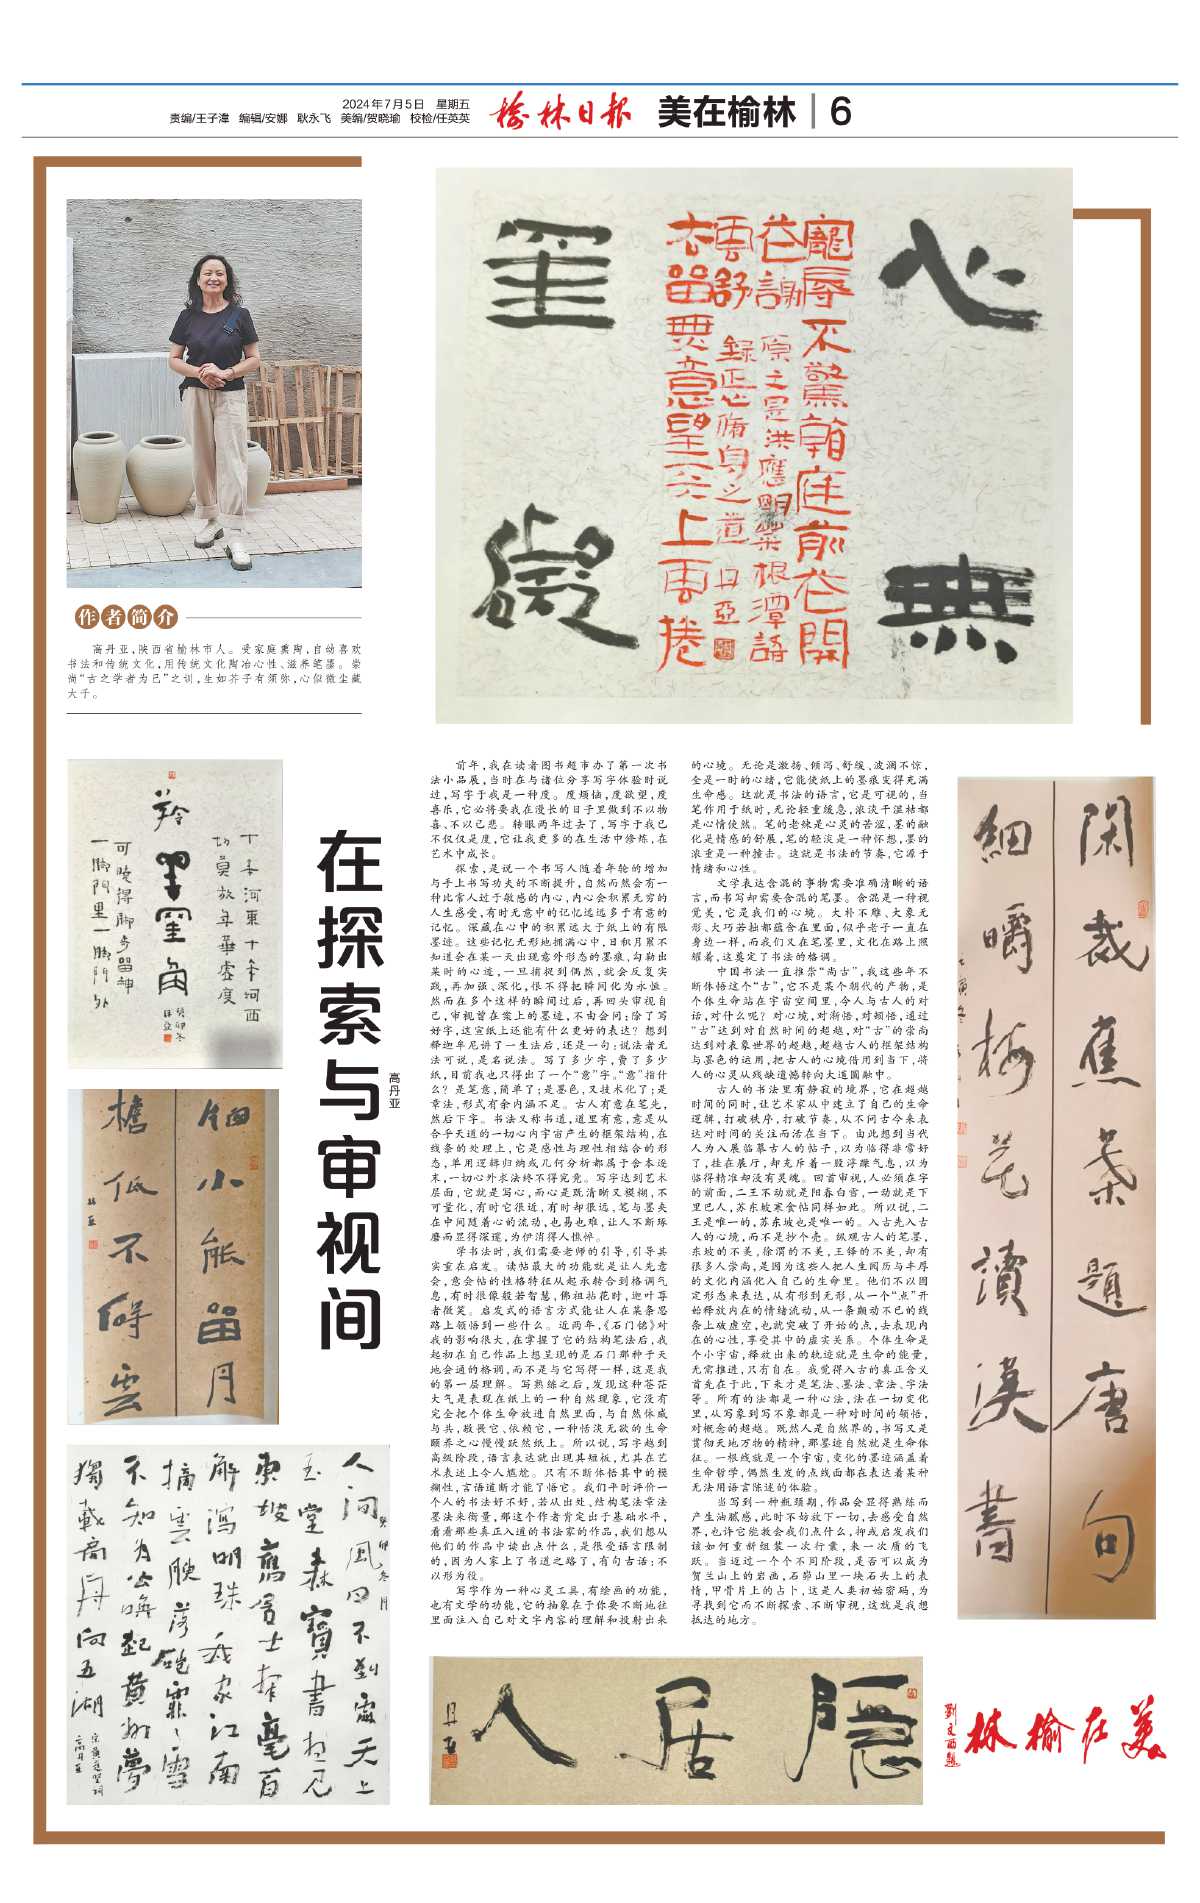 2024年7月5日 星期五
责编/王子漳 编辑/安娜 耿永飞 美编/贺晓瑜 校检/任英英
榆林日报
美在榆林 6
心無罣礙
寵辱不驚觀庭前花開
花謝
去留無意望天上雲捲
雲舒
作者简介
高丹亚,陕西省榆林市人。受家庭熏陶,自幼喜欢
书法和传统文化,用传统文化陶冶心性、滋养笔墨。崇
尚“古之学者为己”之训,生如芥子有须弥,心似微尘藏
大千。
在探索与审视间
高丹亚
前年,我在读者图书超市办了第一次书
法小品展,当时在与诸位分享写字体验时说
过,写字于我是一种度。度烦恼,度欲望,度
喜乐,它必将要我在漫长的日子里做到不以物
喜、不以己悲。转眼两年过去了,写字于我已
不仅仅是度,它让我更多的在生活中修炼,在
艺术中成长。
探索,是说一个书写人随着年轮的增加
与手上书写功夫的不断提升,自然而然会有一
种比常人过于敏感的内心,内心会积累无穷的
人生感受,有时无意中的记忆远远多于有意的
记忆。深藏在心中的积累远大于纸上的有限
墨迹。这些记忆无形地拥满心中,日积月累不
知道会在某一天出现意外形态的墨痕,勾勒出
某时的心迹,一旦捕捉到偶然,就会反复实
践,再加强、深化,恨不得把瞬间化为永恒。
然而在多个这样的瞬间过后,再回头审视自
己,审视曾在案上的墨迹,不由会问:除了写
好字,这宣纸上还能有什么更好的表达?想到
释迦牟尼讲了一生法后,还是一句:说法者无
法可说,是名说法。写了多少字,费了多少
纸,目前我也只得出了一个“意”字。“意”指什
么?是笔意,简单了;是墨色,又技术化了;是
章法、形式有余内涵不足。古人有意在笔先,
然后下字。书法又称书道,道里有意,意是从
合乎天道的一切心内宇宙产生的框架结构,在
线条的处理上,它是感性与理性相结合的形
态,单用逻辑归纳或几何分析都属于舍本逐
末,一切心外求法终不得究竟。写字达到艺术
层面,它就是写心,而心是既清晰又模糊,不
可量化,有时它很近,有时却很远,笔与墨夹
在中间随着心的流动,也易也难,让人不断琢
磨而显得深邃,为伊消得人憔悴。
学书法时,我们需要老师的引导,引导其
实重在启发。读帖最大的功能就是让人先意
会,意会帖的性格特征从起承转合到格调气
息,有时很像般若智慧,佛祖拈花时,迦叶尊
者微笑。启发式的语言方式能让人在某条思
路上领悟到一些什么。近两年,《石门铭》对
我的影响很大,在掌握了它的结构笔法后,我
起初在自己作品上想呈现的是石门那种于天
地会通的格调,而不是与它写得一样,这是我
的第一层理解。写熟练之后,发现这种苍茫
大气是表现在纸上的一种自然现象,它没有
完全把个体生命放进自然里面,与自然休戚
与共,敬畏它、依赖它,一种恬淡无欲的生命
颐养之心慢慢跃然纸上。所以说,写字越到
高级阶段,语言表达就出现其短板,尤其在艺
术表述上令人尴尬。只有不断体悟其中的模
糊性,言语道断才能了悟它。我们平时评价一
个人的书法好不好,若从出处、结构笔法章法
墨法来衡量,那这个作者肯定出于基础水平,
看看那些真正入道的书法家的作品,我们想从
他们的作品中读出点什么,是很受语言限制
的,因为人家上了书道之路了,有句古话:不
以形为役。
写字作为一种心灵工具,有绘画的功能,
也有文学的功能,它的抽象在于你要不断地往
里面注入自己对文字内容的理解和投射出来
的心境。无论是激扬、倾泻、舒缓、波澜不惊,
全是一时的心绪,它能使纸上的墨痕变得充满
生命感。这就是书法的语言,它是可视的,当
笔作用于纸时,无论轻重缓急,浓淡干湿枯都
是心情使然。笔的老辣是心灵的苦涩,墨的融
化是情感的舒展,笔的轻淡是一种怀想,墨的
浓重是一种撞击。这就是书法的节奏,它源于
情绪和心性。
文学表达含混的事物需要准确清晰的语
言,而书写却需要含混的笔墨。含混是一种视
觉美,它是我们的心境。大朴不雕、大象无
形、大巧若拙都蕴含在里面,似乎老子一直在
身边一样,而我们又在笔墨里,文化在路上照
耀着,这奠定了书法的格调。
中国书法一直推崇“尚古”,我这些年不
断体悟这个“古”,它不是某个朝代的产物,是
个体生命站在宇宙空间里,今人与古人的对
话,对什么呢?对心境,对渐悟,对顿悟,通过
“古”达到对自然时间的超越,对“古”的崇尚
达到对表象世界的超越,超越古人的框架结构
与墨色的运用,把古人的心境借用到当下,将
人的心灵从残缺遗憾转向大道圆融中。
古人的书法里有静寂的境界,它在超越
时间的同时,让艺术家从中建立了自己的生命
逻辑,打破秩序,打破节奏,从不问古今来表
达对时间的关注而活在当下。由此想到当代
人为入展临摹古人的帖子,以为临得非常好
了,挂在展厅,却充斥着一股浮躁气息,以为
临得精准却没有灵魂。回首审视,人必须在字
的前面,二王不动就是阳春白雪,一动就是下
里巴人,苏东坡寒食帖同样如此。所以说,二
王是唯一的,苏东坡也是唯一的。入古先入古
人的心境,而不是抄个壳。纵观古人的笔墨,
东坡的不美,徐渭的不美,王铎的不美,却有
很多人崇尚,是因为这些人把人生阅历与丰厚
的文化内涵化入自己的生命里。他们不以固
定形态来表达,从有形到无形,从一个“点”开
始释放内在的情绪流动,从一条颤动不已的线
条上破虚空,也就突破了开始的点,去表现内
在的心性,享受其中的虚实关系。个体生命是
个小宇宙,释放出来的轨迹就是生命的能量,
无需推进,只有自在。我觉得入古的真正含义
首先在于此,下来才是笔法、墨法、章法、字法
等。所有的法都是一种心法,法在一切变化
里,从写象到写不象都是一种对时间的领悟,
对概念的超越。既然人是自然界的,书写又是
贯彻天地万物的精神,那墨迹自然就是生命体
征。一根线就是一个宇宙,变化的墨迹涵盖着
生命哲学,偶然生发的点线面都在表达着某种
无法用语言陈述的体验。
当写到一种瓶颈期,作品会显得熟练而
产生油腻感,此时不妨放下一切,去感受自然
界,也许它能教会我们点什么,抑或启发我们
该如何重新组装一次行囊,来一次质的飞
跃。当返过一个个不同阶段,是否可以成为
贺兰山上的岩画,石峁山里一块石头上的表
情,甲骨片上的占卜,这是人类初始密码,为
寻找到它而不断探索、不断审视,这就是我想
抵达的地方。
閑裁蕉葉題唐句
細嚼梅花讀漢書
細小能留月
檐低不碍雲
人间風日不到處天上
玉堂森寶書想見
東坡舊居士揮毫百
斛瀉明珠我家江南
摘雲腴落磑霏霏雪
不知為公喚起黄州夢
獨載扁舟向五湖
隱居人
丹亚
美在榆林
刘文西题